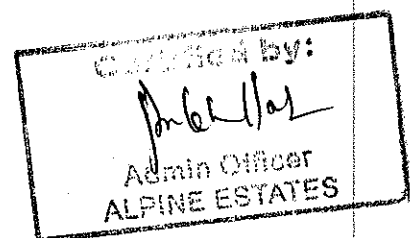 Certified by:
Admin Officer
ALPINE ESTATES